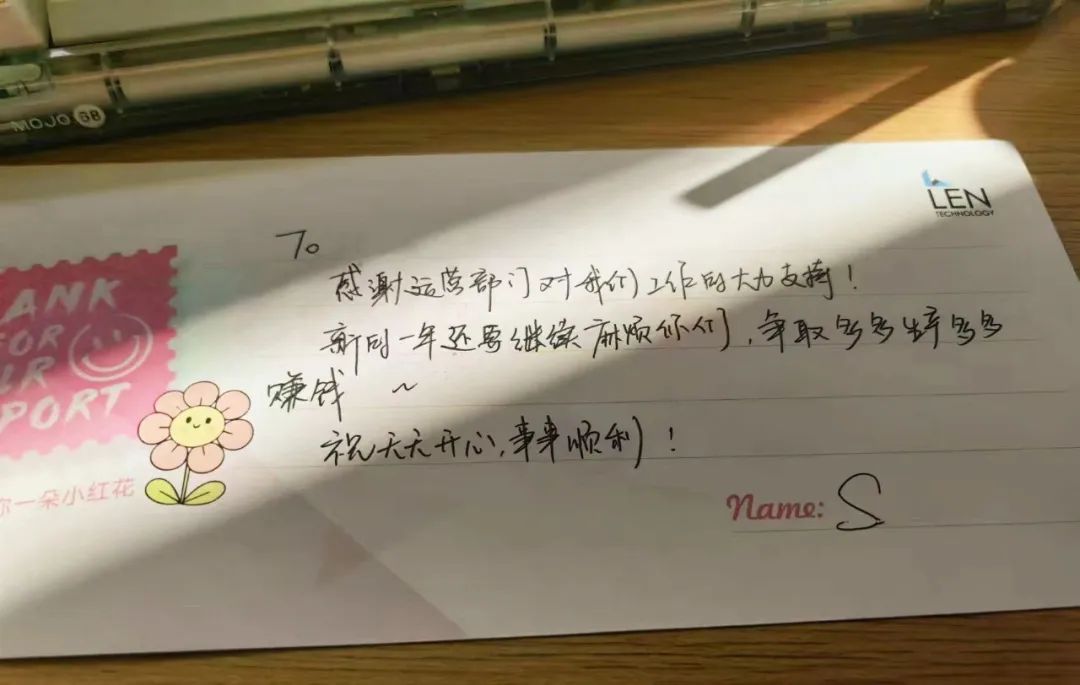 MOJO 68
LEN
TECHNOLOGY
To
感谢运营部门对我们工作的大力支持！
新的一年还要继续麻烦你们，争取多多 多多
赚钱 ~
祝天天开心，事事顺利！
Name: S
ANK
FOR
UR
PORT
你一朵小红花